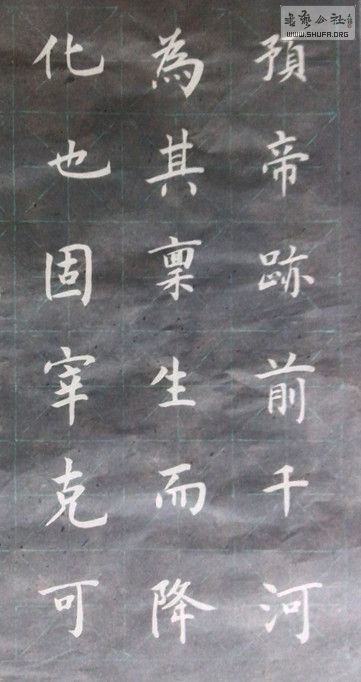 預帝跡前千河
為其稟生而降
化也固宰克可
書藝公社
WWW.SHUFA.ORG